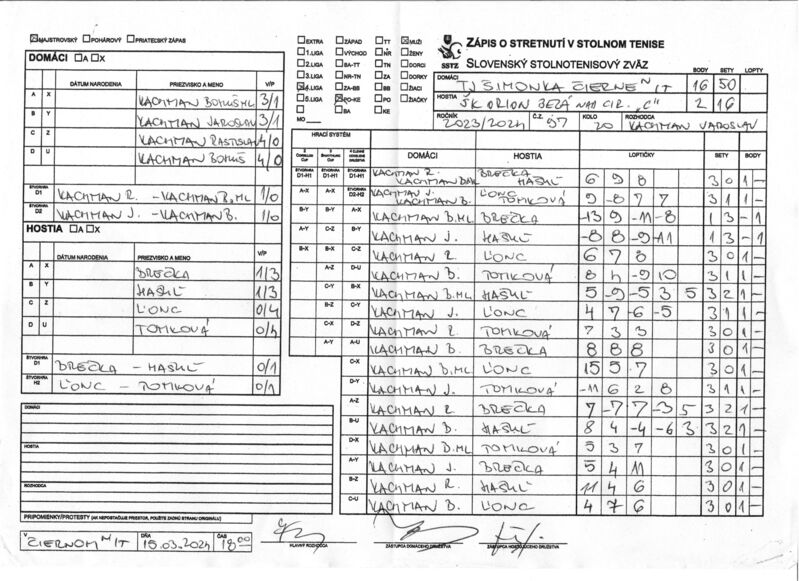 ☒MAJSTROVSKÝ ☐POHÁROVÝ ☐PRIATEĽSKÝ ZÁPAS
DOMÁCI ☐A ☐X
DÁTUM NARODENIA PRIEZVISKO A MENO V/P
A X KACHMAN BOHUŠ ML 3/1
B Y KACHMAN JAROSLAV 3/1
C Z KACHMAN RASTISLAV 4/0
D U KACHMAN BOHUŠ 4/0
ŠTVORHRA D1 KACHMAN R. - KACHMAN B.ML 1/0
ŠTVORHRA D2 KACHMAN J. - KACHMAN B. 1/0
HOSTIA ☐A ☐X
DÁTUM NARODENIA PRIEZVISKO A MENO V/P
A X BREČKA 1/3
B Y HASKÚ 1/3
C Z ĽONC 0/4
D U TOMKOVÁ 0/4
ŠTVORHRA D1 BREČKA - HASKÚ 0/1
ŠTVORHRA H2 ĽONC - TOMKOVÁ 0/1
DOMÁCI
HOSTIA
ROZHODCA
PRIPOMIENKY/PROTESTY (AK NEPOSTAČUJE PRIESTOR, POUŽITE ZADNÚ STRANU ORIGINÁLU)
V ČIERNOM N/T DŇA 15.03.2024 ČAS 18:00
☐EXTRA ☐ZÁPAD ☐TT ☒MUŽI
☐1.LIGA ☐VÝCHOD ☐NR ☐ŽENY
☐2.LIGA ☐BA-TT ☐TN ☐DORCI
☐3.LIGA ☐NR-TN ☐ZA ☐DORKY
☒4.LIGA ☐ZA-BB ☐BB ☐ŽIACI
☐5.LIGA ☒PO-KE ☐PO ☐ŽIAČKY
☐BA ☐KE
MO
SSTZ
ZÁPIS O STRETNUTÍ V STOLNOM TENISE
SLOVENSKÝ STOLNOTENISOVÝ ZVÄZ
BODY SETY LOPTY
DOMÁCI TJ ŠIMONKA ČIERNE N/T 16 50
HOSTIA ŠK ORION BZÁ NAD CIR. "C" 2 16
ROČNÍK 2023/2024 Č.Z. 97 KOLO 20 ROZHODCA KACHMAN JAROSLAV
HRACÍ SYSTÉM
DOMÁCI HOSTIA LOPTIČKY SETY BODY
ŠTVORHRA D1-H1 ŠTVORHRA D1-H1 ŠTVORHRA D1-H1 KACHMAN R. KACHMAN B.ML BREČKA HASKÚ 6 9 8 3 0 1 -
A-X A-X ŠTVORHRA D2-H2 KACHMAN J. KACHMAN B. ĽONC TOMKOVÁ 9 -8 7 7 3 1 1 -
B-Y B-Y A-X KACHMAN B.ML BREČKA -13 9 -11 -8 1 3 - 1
A-Y C-Z B-Y KACHMAN J. HASKÚ -8 8 -9 -11 1 3 - 1
B-X B-X C-Z KACHMAN R. ĽONC 6 7 8 3 0 1 -
A-Z D-U KACHMAN B. TOMKOVÁ 8 4 -9 10 3 1 1 -
C-Y B-X KACHMAN B.ML HASKÚ 5 -9 -5 3 5 3 2 1 -
B-Z C-Y KACHMAN J. ĽONC 4 7 -6 -5 3 1 1 -
C-X D-Z KACHMAN R. TOMKOVÁ 7 3 3 3 0 1 -
A-Y A-U KACHMAN B. BREČKA 8 8 8 3 0 1 -
C-X KACHMAN B.ML ĽONC 15 5 7 3 0 1 -
D-Y KACHMAN J. TOMKOVÁ -11 6 2 8 3 1 1 -
A-Z KACHMAN R. BREČKA 7 -7 7 -3 5 3 2 1 -
B-U KACHMAN B. HASKÚ 8 4 -4 -6 3 3 2 1 -
D-X KACHMAN B.ML TOMKOVÁ 5 3 7 3 0 1 -
A-Y KACHMAN J. BREČKA 5 4 11 3 0 1 -
B-Z KACHMAN R. HASKÚ 11 4 6 3 0 1 -
C-U KACHMAN B. ĽONC 4 7 6 3 0 1 -
HLAVNÝ ROZHODCA ZÁSTUPCA DOMÁCEHO DRUŽSTVA ZÁSTUPCA HOSŤUJÚCEHO DRUŽSTVA